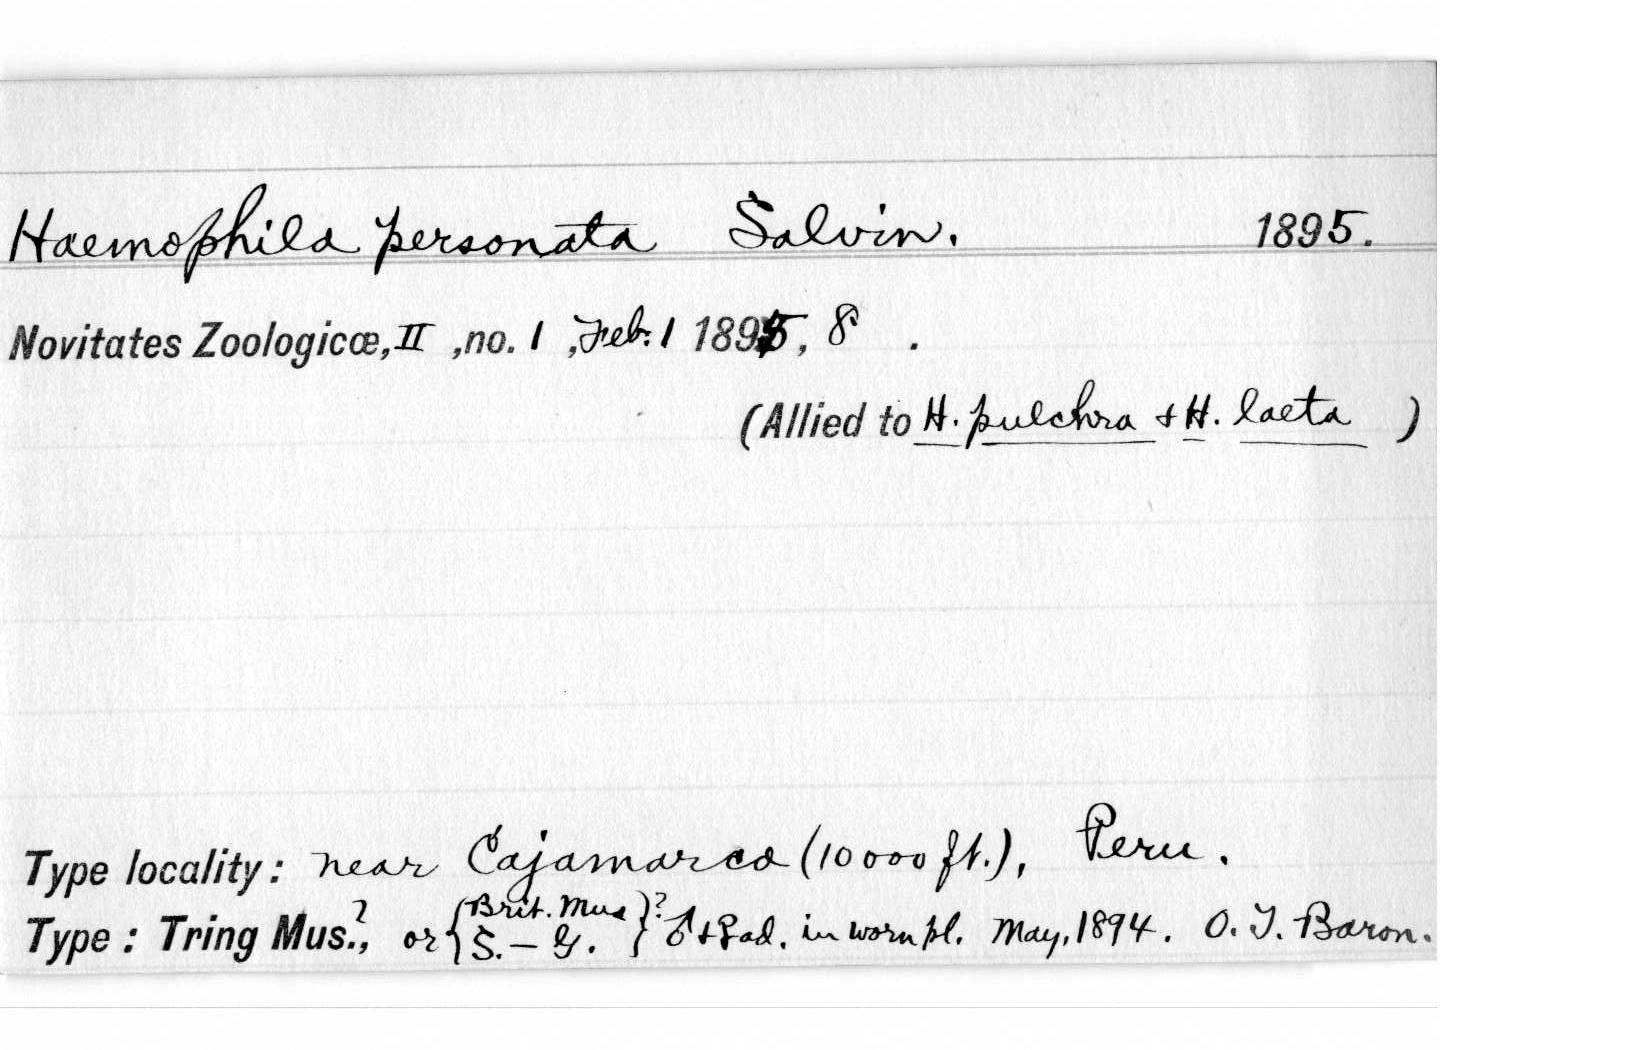 Haemophila personata Salvin. 1895.
Novitates Zoologicæ, II, no. 1, Feb. 1 1895, 8.
(Allied to H. pulchra + H. laeta)
Type locality: near Cajamarca (10000 ft.), Peru.
Type: Tring Mus.?, or {Brit. Mus S.–G.}? ♂+♀ad. in worn pl. May, 1894. O. T. Baron.